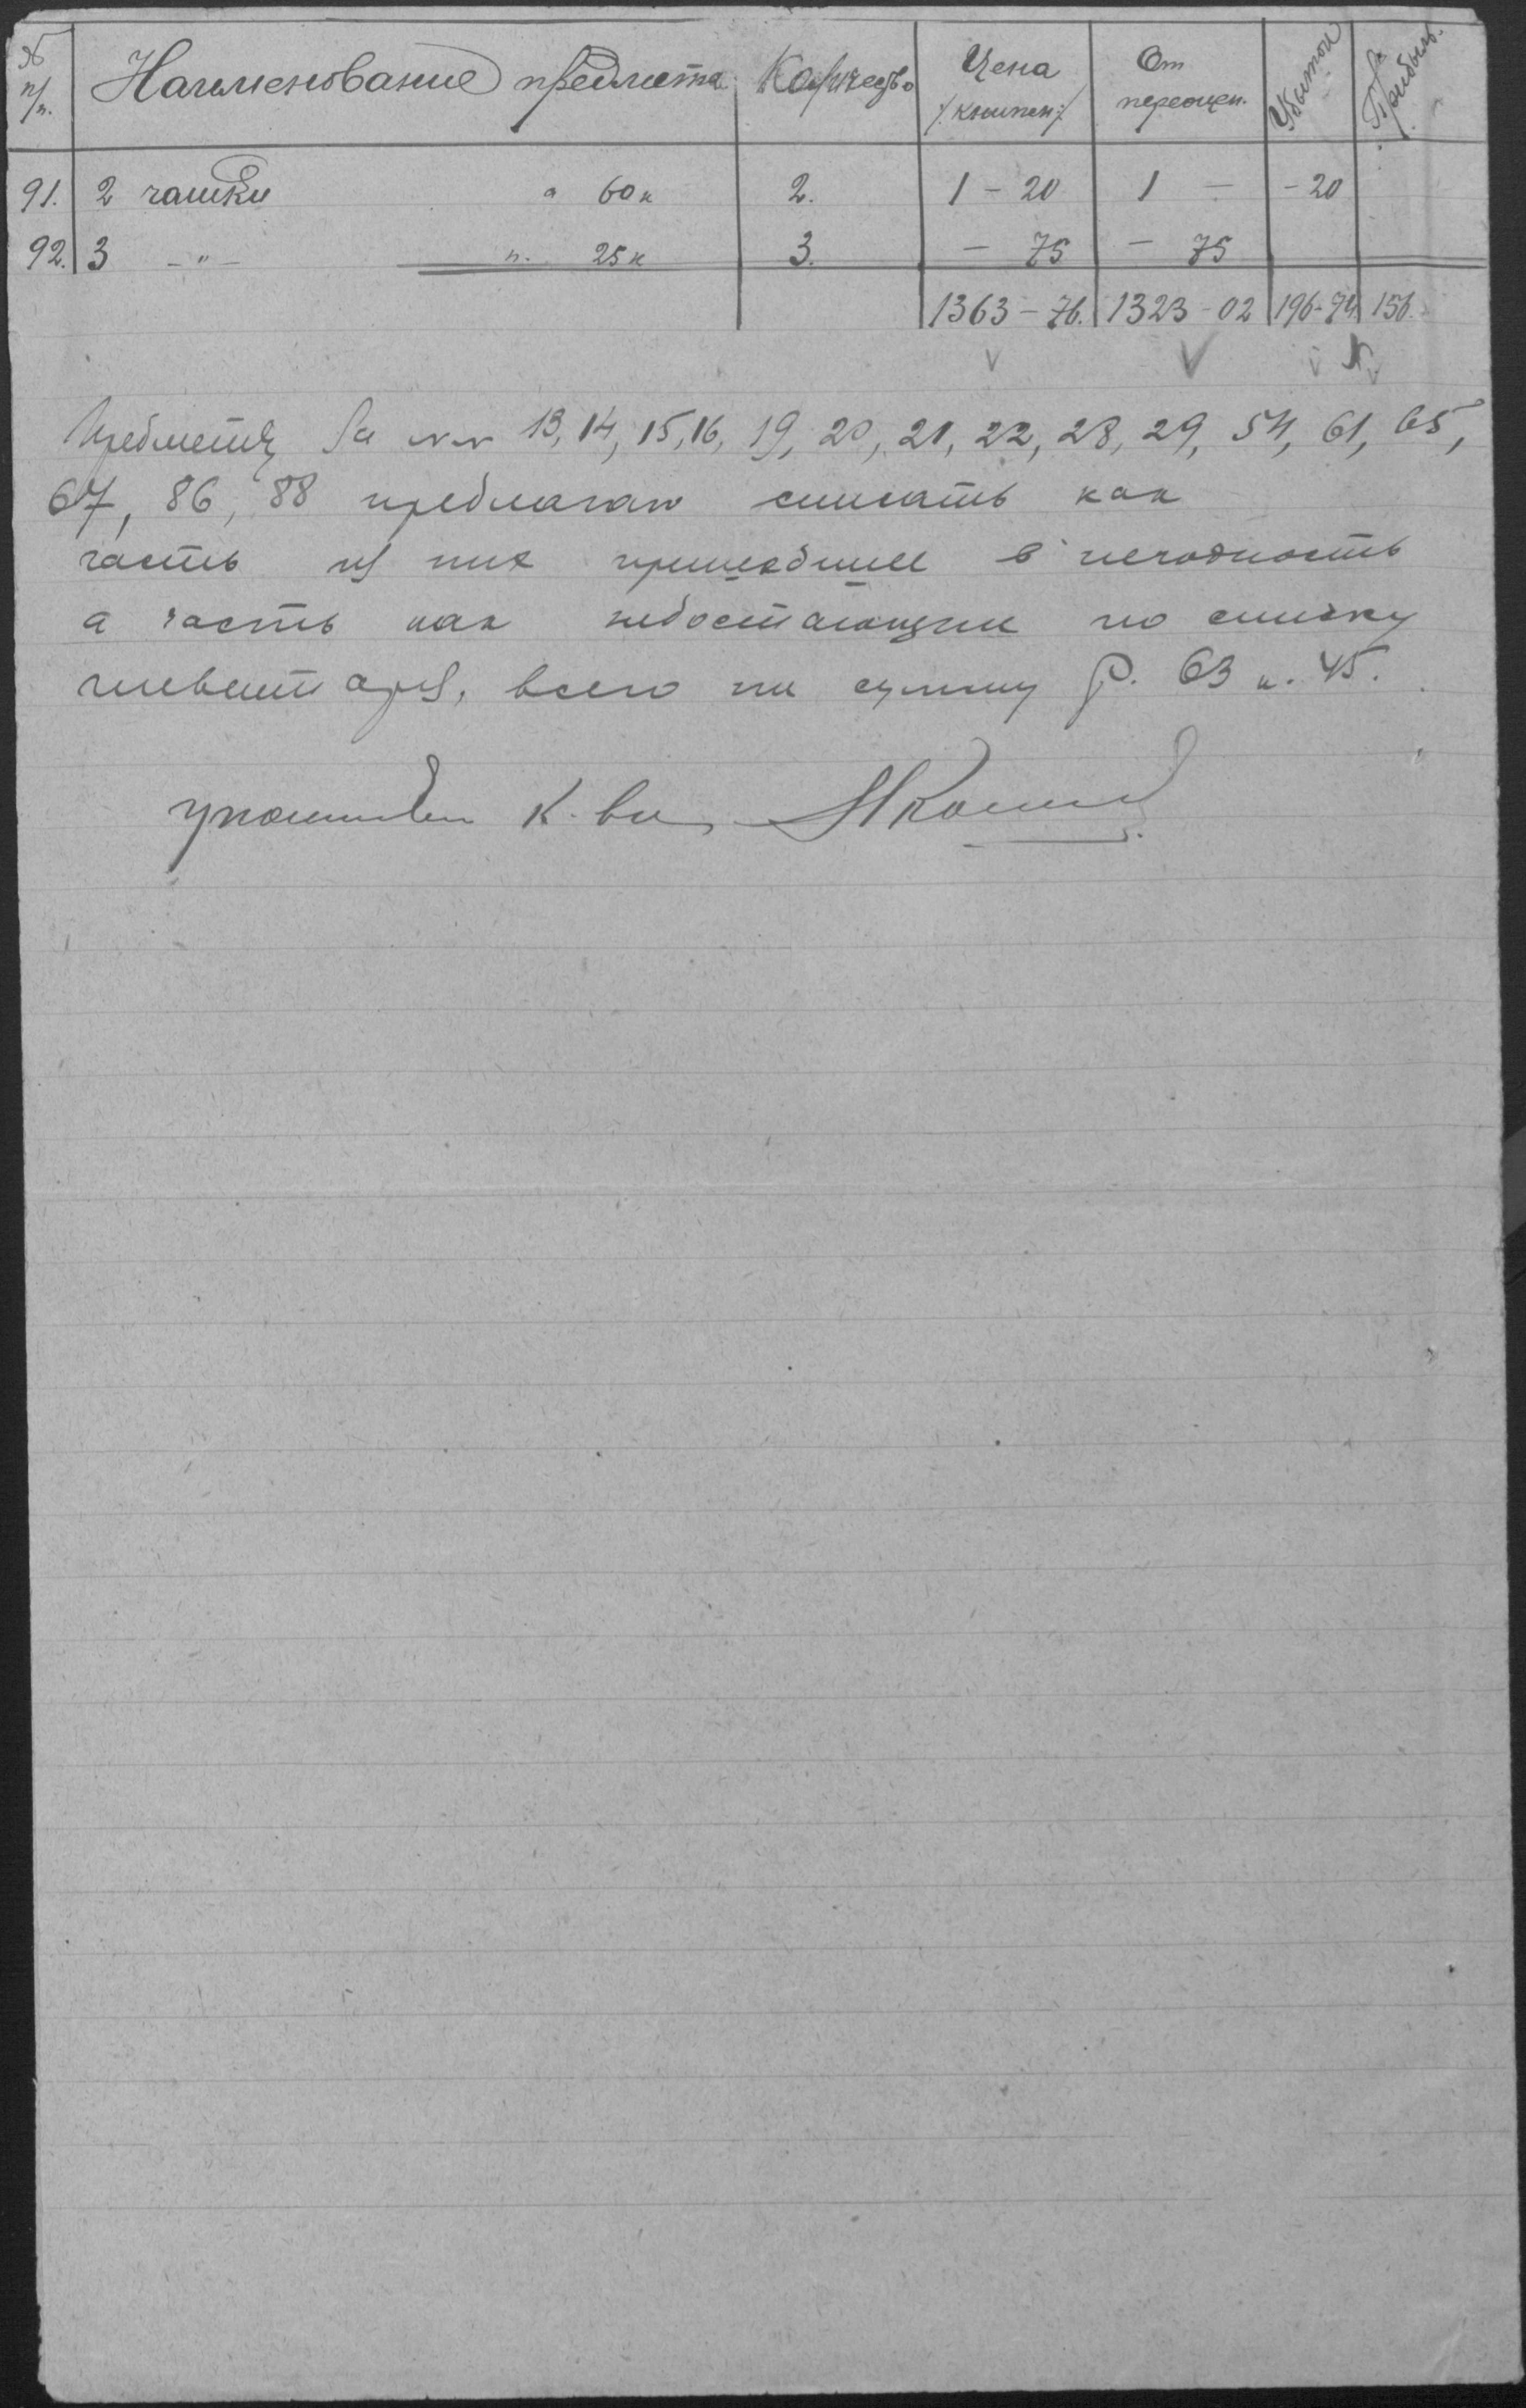 № п/п. Наименование предмета Количество Цена /:книжн:/ От переоцен. Убыток Прибыль.
91. 2 чашки а 60 к 2. 1 - 20 1 - - 20
92. 3 - " - п. 25 к 3. - 75 - 75
1363 - 76. 1323 - 02 196 - 74 156.
Предметы за №№ 13, 14, 15, 16, 19, 20, 21, 22, 28, 29, 54, 61, 65,
67, 86, 88 предлагаю списать как
часть из них пришедшие в негодность
а часть как недостающие по списку
инвентаря, всего на сумму р. 63 к. 45.
К-ва